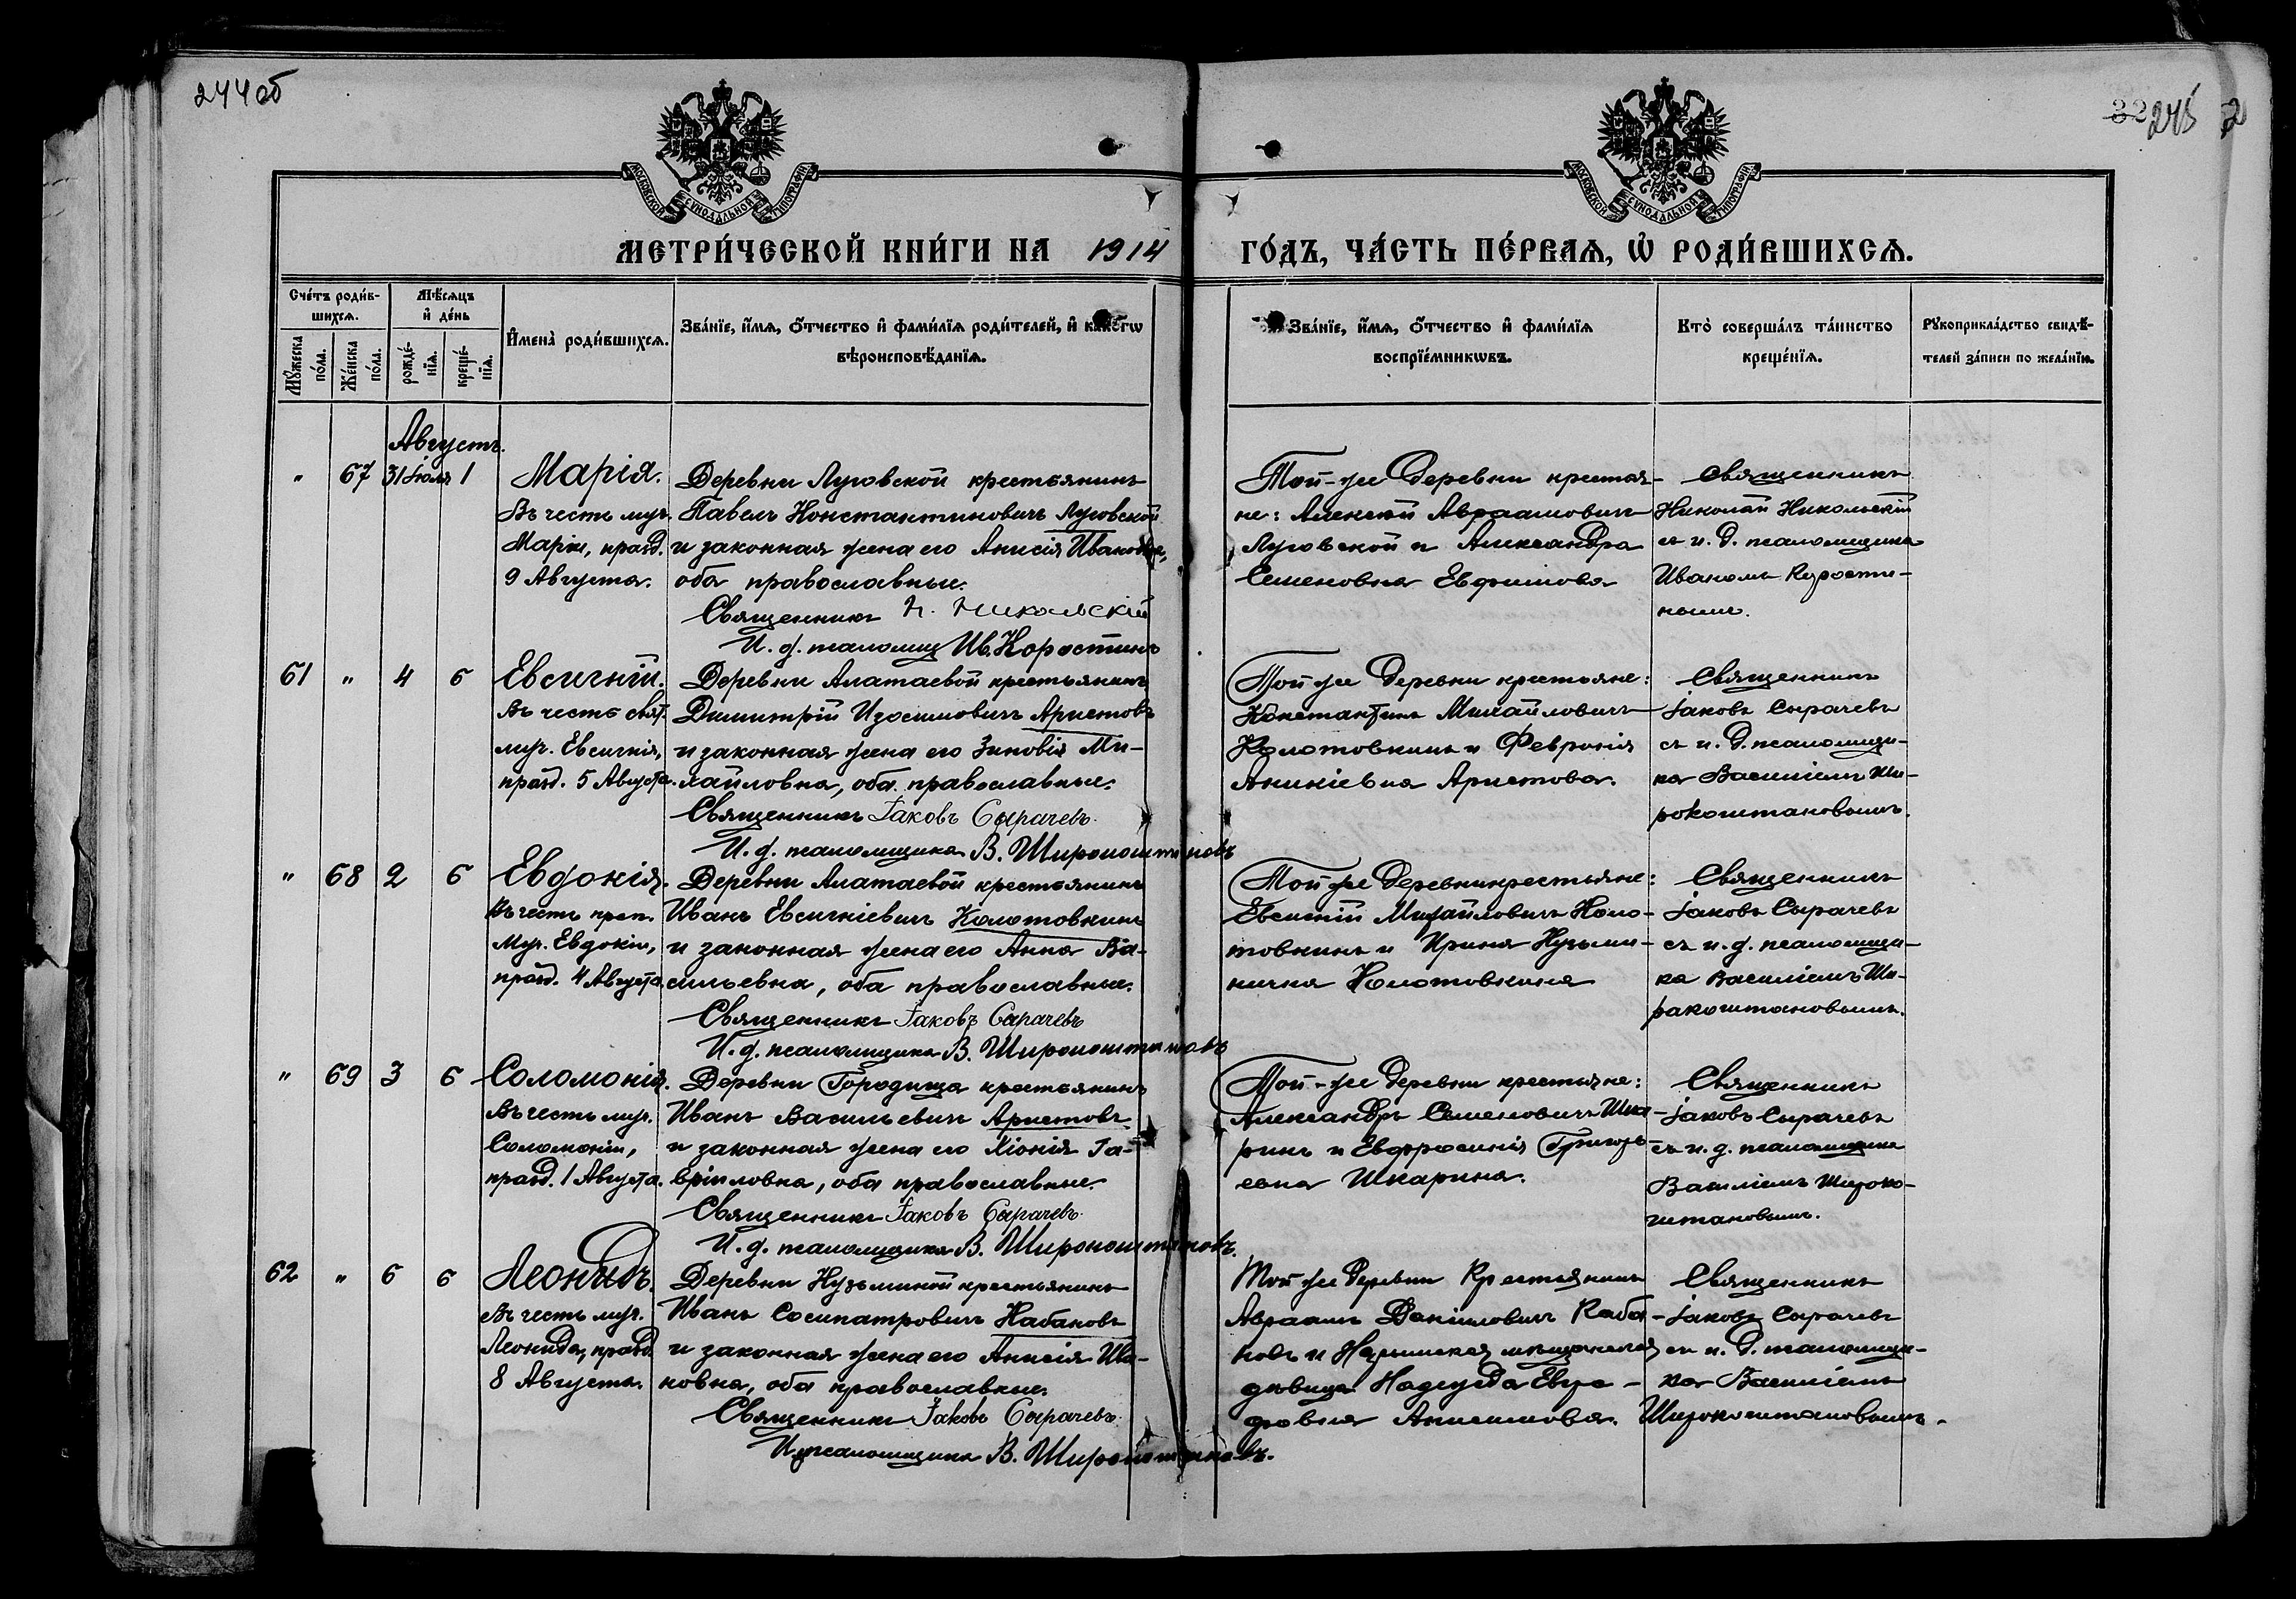 244об
32 245 2
МОСКОВСКОЙ СУНОДАЛЬНОЙ ТИПОГРАФІИ.
МОСКОВСКОЙ СУНОДАЛЬНОЙ ТИПОГРАФІИ.
МЕТРИ́ЧЕСКОЙ КНИ́ГИ НА 1914 ГО́ДЪ, ЧА́СТЬ ПЕ́РВАѦ, Ѡ҆ РОДИ́ВШИХСѦ.
Сче́тъ роди́в-
шихсѧ.
Мѣ́сѧцъ
и҆ де́нь
Мꙋ́жеска
по́ла.
Же́нска
по́ла.
рожде́-
нїѧ.
креще́-
нїѧ.
И҆мена̀ роди́вшихсѧ.
Зва́нїе, и҆́мѧ, ѻ҆́тчество и҆ фами́лїѧ роди́телей, и҆ како́гѡ
вѣроисповѣ́данїѧ.
Зва́нїе, и҆́мѧ, ѻ҆́тчество и҆ фами́лїѧ
воспрїе́мникѡвъ.
Кто̀ соверша́лъ та́инство
креще́нїѧ.
Рꙋкоприкла́дство свидѣ́-
телей за́писи по жела́нїю.
Августъ.
" 67 31 Іюля 1 Марія.
Въ честь муч.
Маріи, празд.
9 Августа.
Деревни Луговской крестьянинъ
Павелъ Константиновичъ Луговской
и законная жена его Анисія Ивановна,
оба православные.
Священникъ Н. Никольскій
И. д. псаломщ Ив. Коростинъ
Той-же деревни крестья-
не: Алексѣй Авраамовичъ
Луговской и Александра
Семеновна Евфимова
Священникъ
Николай Никольскій
съ и. д. псаломщика
Иваномъ Корости-
нымъ.
61 " 4 6 Евсигній.
Въ честь свят.
муч. Евсигнія,
празд. 5 Августа.
Деревни Алатаевой крестьянинъ
Димитрій Изосимовичъ Аристовъ
и законная жена его Зиновія Ми-
хайловна, оба православные.
Священникъ Іаковъ Сырачевъ.
И. д. псаломщика В. Широкоштановъ
Той же деревни крестьяне:
Константинъ Михайловичъ
Колотовкинъ и Февронія
Аникіевна Аристова.
Священникъ
Іаковъ Сырачевъ
съ и. д. псаломщи-
ка Василіемъ Ши-
рокоштановымъ.
" 68 2 6 Евдокія.
Въ честь преп.
муч. Евдокіи,
празд. 4 Августа.
Деревни Алатаевой крестьянинъ
Иванъ Евсигніевичъ Колотовкинъ
и законная жена его Анна Ва-
сильевна, оба православные.
Священникъ Іаковъ Сырачевъ
И. д. псаломщика В. Широкоштановъ
Той же деревни крестьяне:
Евсигній Михайловичъ Коло-
товкинъ и Ирина Кузьми-
нична Колотовкина
Священникъ
Іаковъ Сырачевъ
съ и. д. псаломщи-
ка Василіемъ Ши-
ракоштановымъ.
" 69 3 6 Соломонія.
Въ честь муч.
Соломоніи,
празд. 1 Августа.
Деревни Городища крестьянинъ
Иванъ Васильевичъ Аристовъ
и законная жена его Хіонія Га-
вріиловна, оба православные.
Священникъ Іаковъ Сырачевъ.
И. д. псаломщика В. Широкоштановъ.
Той-же деревни крестьяне:
Александръ Семеновичъ Шка-
ринъ и Евфросинія Григорь-
евна Шкарина.
Священникъ
Іаковъ Сырачевъ
съ и. д. псаломщика
Василіемъ Широко-
штановымъ.
62 " 6 6 Леонидъ.
Въ честь муч.
Леонида, празд.
8 Августа.
Деревни Кузьминой крестьянинъ
Иванъ Сосипатровичъ Кабановъ
и законная жена его Анисія Ива-
новна, оба православные.
Священникъ Іаковъ Сырачевъ.
И. д. псаломщика В. Широкоштановъ.
Той же деревни Крестьянинъ
Авраамъ Даніиловичъ Каба-
новъ и Нарымская мѣщанская
дѣвица Надежда Евгра-
фовна Анисимова.
Священникъ
Іаковъ Сырачевъ
съ и. д. псаломщи-
ка Василіемъ
Широкоштановымъ.